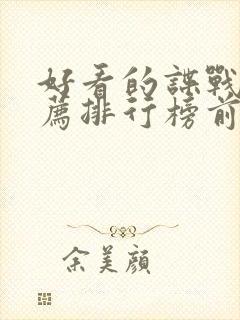 好看的諜戰
薦排行榜前
余美顏